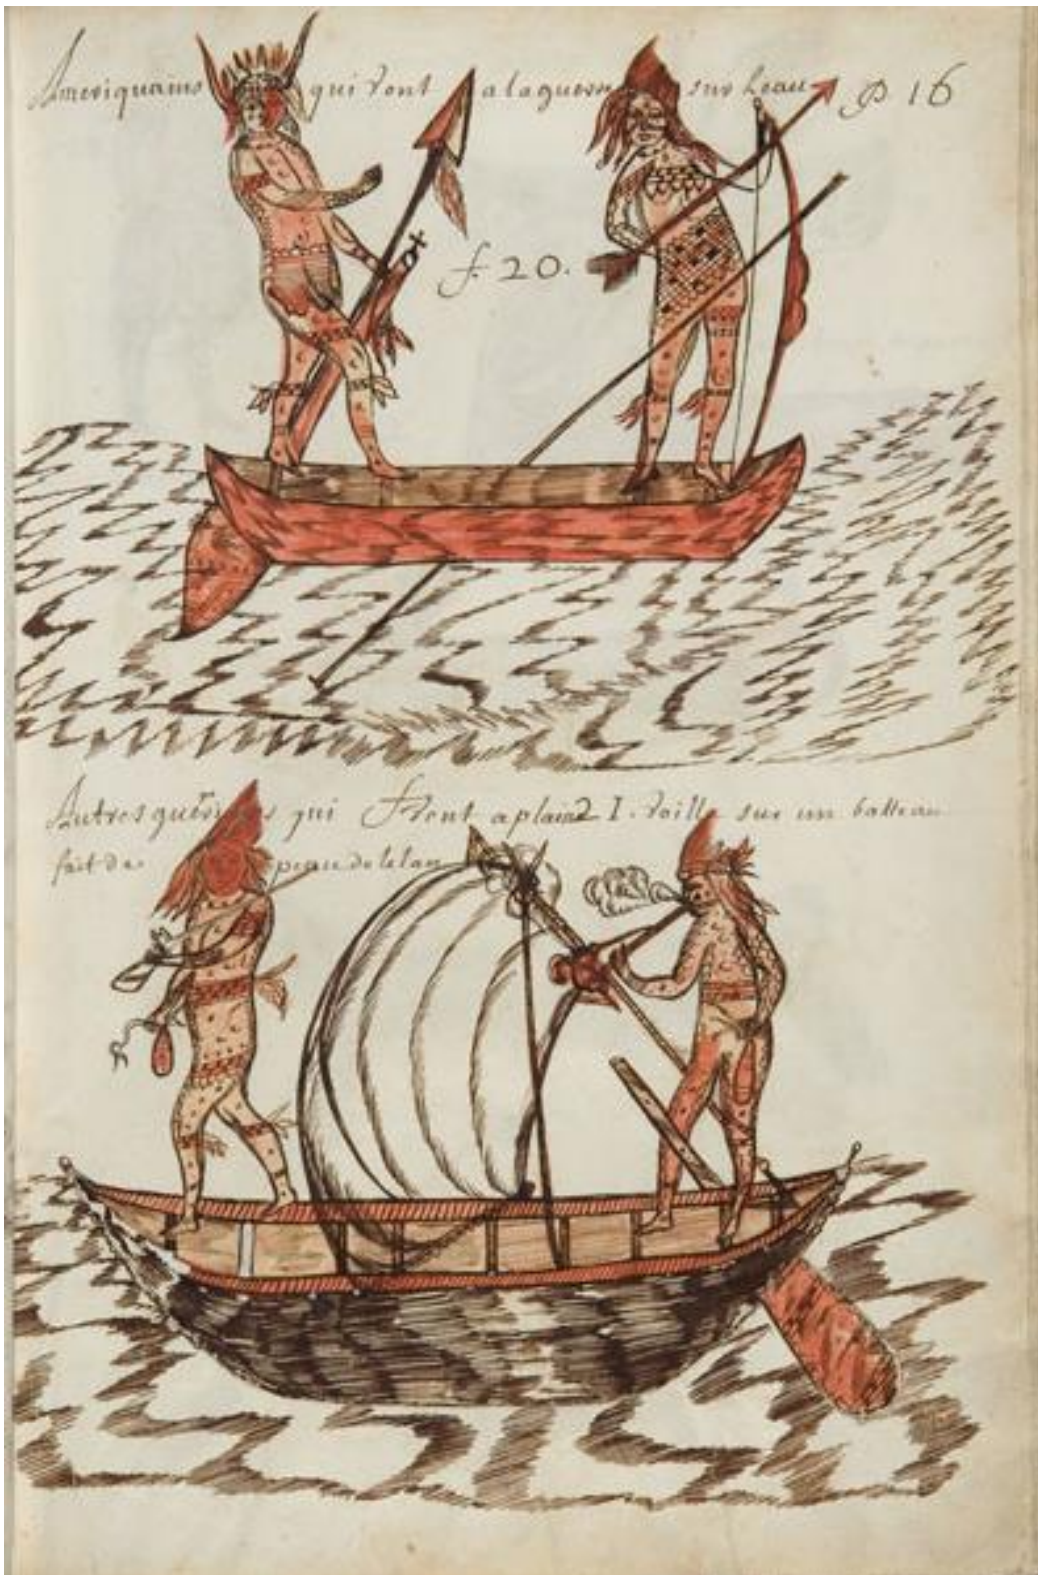 Ameriquains qui vont a la guerre sur leau P 16
f. 20.
Autres qui vont a plaine I. voille sur un batteau
fait de peau de lelan